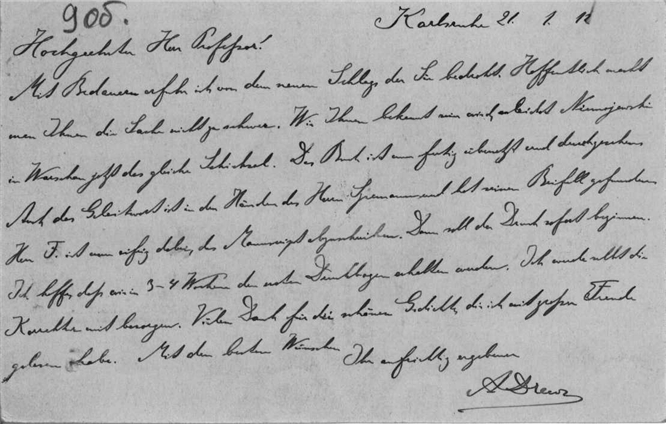 905.
Karlsruhe 21. 1. 12
Hochgeehrter Herr Professor!
Mit Bedauern erfuhr ich von dem neuen Schlage der Sie bedroht. Hoffentlich macht
man Ihnen die Sache nicht zu schwer. Wie Ihnen bekannt sein wird, erleidet Niemojewski
in Warschau jetzt das gleiche Schicksal. Das Buch ist nun fertig übersetzt und durchgesehen.
Auch das Geleitwort ist in den Händen des Herrn und hat seinen Beifall gefunden.
Herr F. ist nun eifrig dabei, das Manuscript abzuschreiben. Dann soll der Druck sofort beginnen.
Ich hoffe, dass wir in 3-4 Wochen den ersten Druckbogen erhalten werden. Ich werde selbst die
Korrektur mit besorgen. Vielen Dank für die schönen Gedichte, die ich mit großer Freude
gelesen habe. Mit den besten Wünschen
Ihr aufrichtig ergebener
A Drews